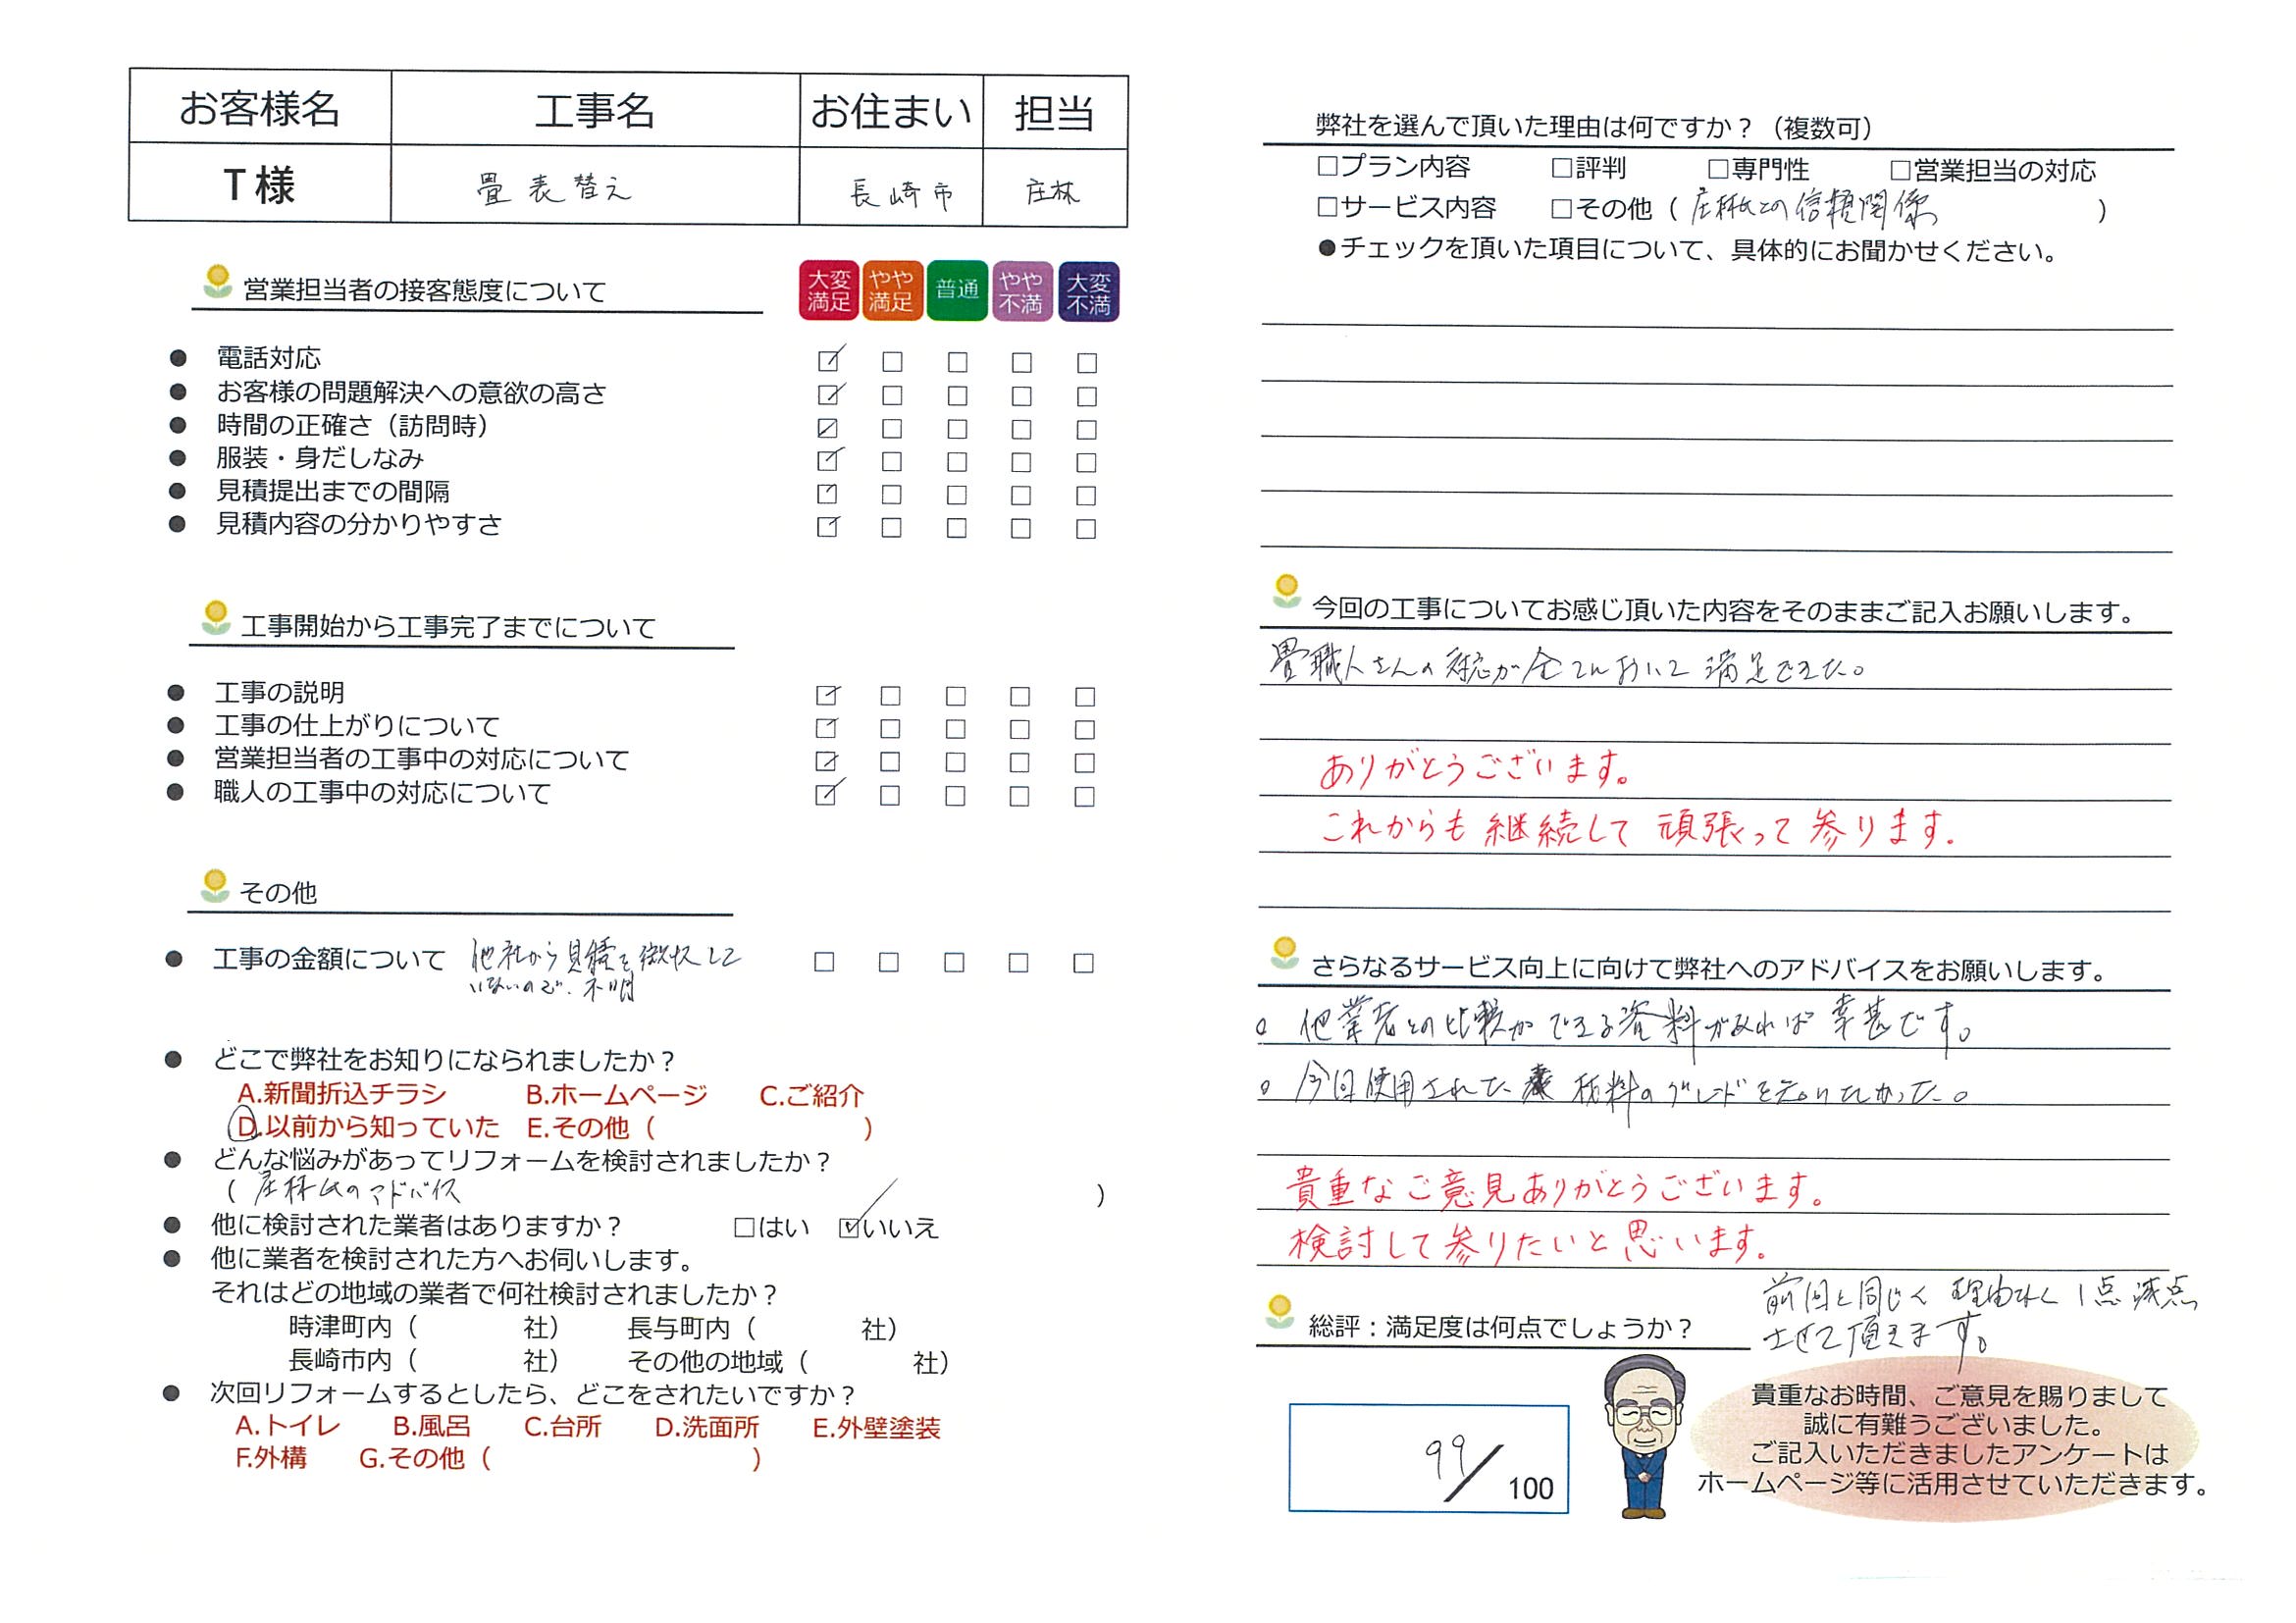 お客様名 工事名 お住まい 担当
T様 畳表替え 長崎市 庄林
営業担当者の接客態度について
大変満足 やや満足 普通 やや不満 大変不満
● 電話対応 ☑ □ □ □ □
● お客様の問題解決への意欲の高さ ☑ □ □ □ □
● 時間の正確さ（訪問時） ☑ □ □ □ □
● 服装・身だしなみ ☑ □ □ □ □
● 見積提出までの間隔 ☑ □ □ □ □
● 見積内容の分かりやすさ ☑ □ □ □ □
工事開始から工事完了までについて
● 工事の説明 ☑ □ □ □ □
● 工事の仕上がりについて ☑ □ □ □ □
● 営業担当者の工事中の対応について ☑ □ □ □ □
● 職人の工事中の対応について ☑ □ □ □ □
その他
● 工事の金額について 他社から見積を徴収して □ □ □ □ □
いないので、不明
● どこで弊社をお知りになられましたか？
A.新聞折込チラシ B.ホームページ C.ご紹介
D.以前から知っていた E.その他（ ）
● どんな悩みがあってリフォームを検討されましたか？
（ 庄林氏のアドバイス ）
● 他に検討された業者はありますか？ □はい ☑いいえ
● 他に業者を検討された方へお伺いします。
それはどの地域の業者で何社検討されましたか？
時津町内（ 社） 長与町内（ 社）
長崎市内（ 社） その他の地域（ 社）
● 次回リフォームするとしたら、どこをされたいですか？
A.トイレ B.風呂 C.台所 D.洗面所 E.外壁塗装
F.外構 G.その他（ ）
弊社を選んで頂いた理由は何ですか？（複数可）
□プラン内容 □評判 □専門性 □営業担当の対応
□サービス内容 □その他（ 庄林氏との信頼関係 ）
●チェックを頂いた項目について、具体的にお聞かせください。
今回の工事についてお感じ頂いた内容をそのままご記入お願いします。
畳職人さんの対応が全てにおいて満足できた。
ありがとうございます。
これからも継続して頑張って参ります。
さらなるサービス向上に向けて弊社へのアドバイスをお願いします。
○ 他業者との比較ができる資料があれば幸甚です。
○ 今回使用された材料のグレードを知りたかった。
貴重なご意見ありがとうございます。
検討して参りたいと思います。
前回と同じく理由なく1点減点
させて頂きます。
総評：満足度は何点でしょうか？
99/100
貴重なお時間、ご意見を賜りまして
誠に有難うございました。
ご記入いただきましたアンケートは
ホームページ等に活用させていただきます。